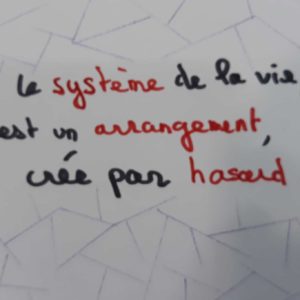 Le système de la vie
est un arrangement,
crée par hasard